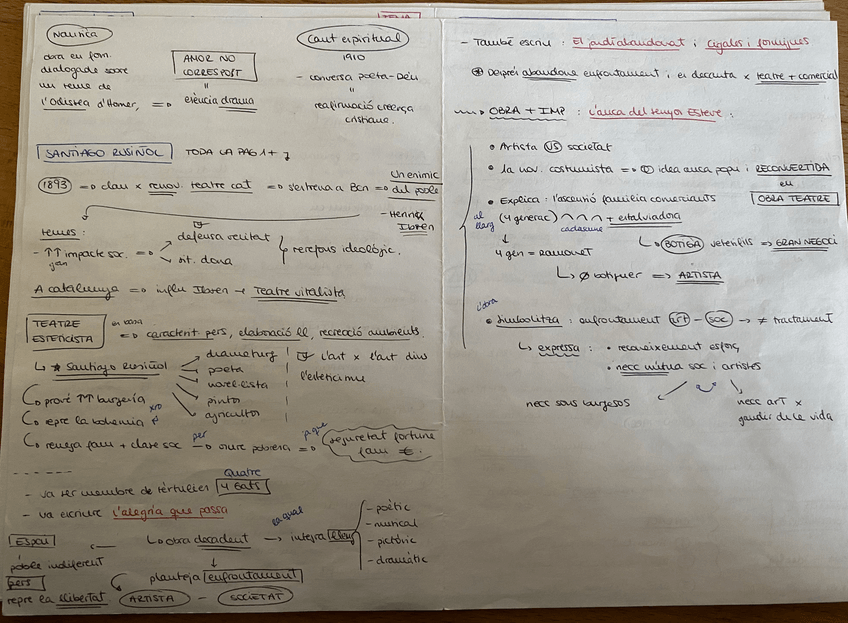 Nausica
obra en form.
dialogada sobre
un tema de
l'Odissea d'Homer, =>
AMOR NO
CORRESPOST
"
essència drama
Cant espiritual
1910
- conversa poeta-Déu
"
reafirmació creença
cristiana.
SANTIAGO RUSIÑOL TODA LA PAG 1 + 7
1893 => clau x renov. teatre cat => s'estrena a Bcn => Un enimic
del poble
- Henrik
Ibsen
temes:
- ↑↑ impacte soc. =>
gran
defensa veritat
sit. dona
rerefons ideològic.
A catalunya => influ Ibsen → Teatre vitalista
TEATRE
ESTETICISTA
en basa
=> caracterit pers, elaboració ll, recreació ambients.
↳ * Santiago Rusiñol
dramaturg
poeta
novel·lista
pintor
agricultor
l'art x l'art dins
l'esteticisme
prové ↑↑ burgesia
xro
repre la bohèmia
renega fam + classe soc per → viure pobresa => ja que
seguretat fortuna
fam €.
- va ser membre de tertúlies Quatre
4 Gats
- va escriure l'alegria que passa
↳ obra decadent → la qual integra lleng
- poètic
- musical
- pictòric
- dramàtic
Espai
poble indiferent
pers
repre la llibertat.
planteja enfrontament
ARTISTA - SOCIETAT
- També escriu: El jardí abandonat i Cigales i formigues
* Després abandona enfrontament i es decanta x teatre + comercial
→ OBRA + IMP: L'auca del senyor Esteve:
• Artista VS societat
• la nov. costumista => idea auca popu i RECONVERTIDA
en
OBRA TEATRE
• Explica: l'ascensió família comerciants
al
llarg
(4 generac) + estalviadora
cadascuna
↳ BOTIGA vetesifils => GRAN NEGOCI
4 gen = Ramonet
↳ Ø botiguer => ARTISTA
l'obra
• Simbolitza: enfrontament art - soc → ≠ tractament
↳ expressa: • reconeixement esforç
• necc mútua soc i artistes
necc sous burgesos
necc art x
gaudir de la vida